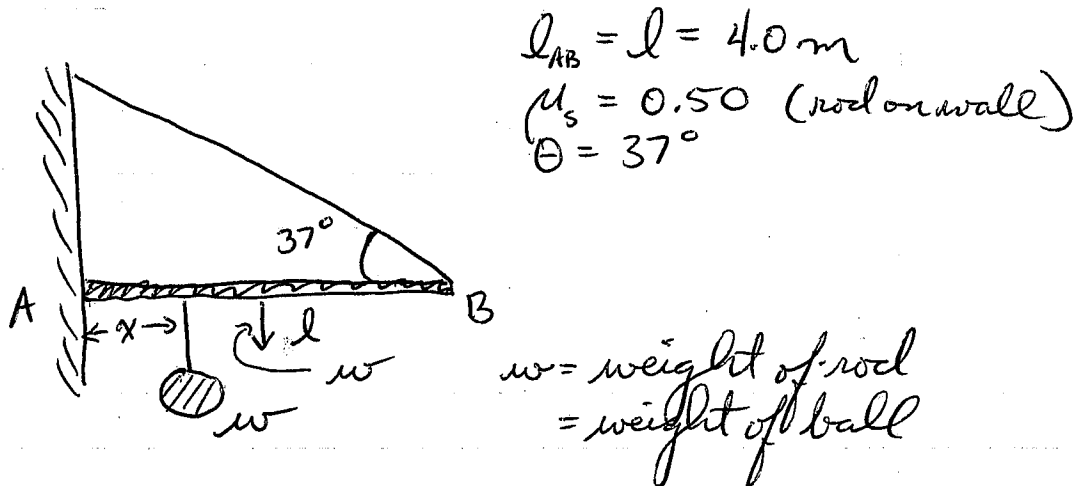 l_AB = l = 4.0 m
μ_s = 0.50 (rod on wall)
θ = 37°
37°
A
B
x
l
w
w
w = weight of rod
= weight of ball